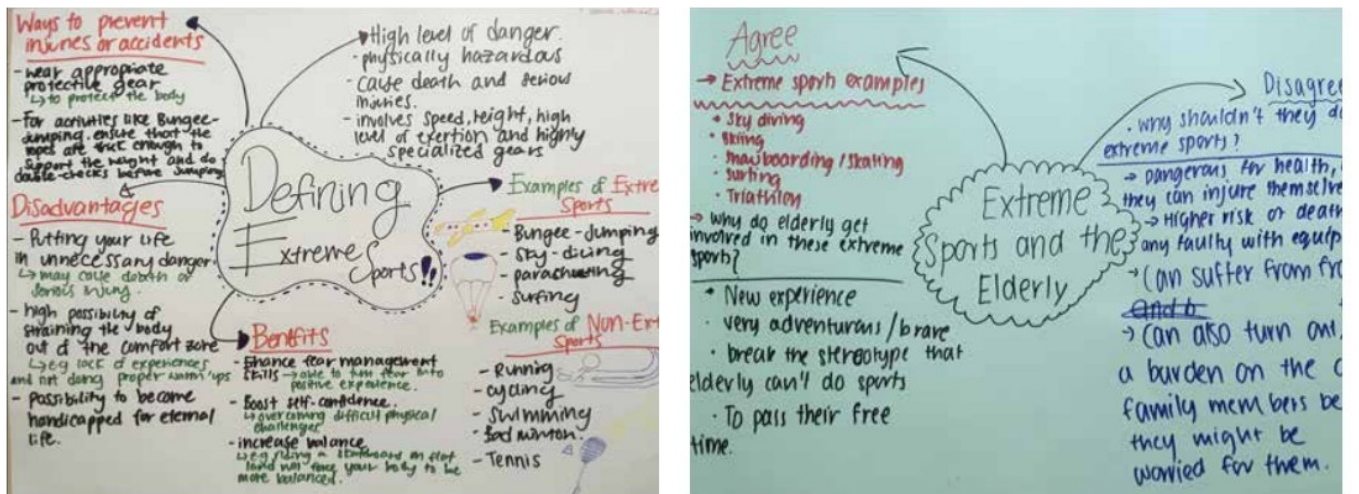 Ways to prevent
injuries or accidents
- wear appropriate
protective gear
↳ to protect the body
- For activities like Bungee-
jumping, ensure that the
ropes are thick enough to
support the weight and do
double-checks before jumping
Disadvantages
- Putting your life
in unnecessary danger
↳ may cause death or
serious injury.
- high possibility of
straining the body
out of the comfort zone
↳ eg lack of experiences
and not doing proper warm ups
- possibility to become
handicapped for eternal
life.
Defining
Extreme
Sports!!
High level of danger.
- physically hazardous
- cause death and serious
injuries.
- involves speed, height, high
level of exertion and highly
specialized gears
Examples of Extre
Sports
- Bungee-Jumping
- sky-diving
- parachuting
- surfing
Examples of Non-Ext
Sports
- Running
- cycling
- swimming
- Badminton.
- Tennis
Benefits
- Enhance fear management
skills → able to turn fear into
positive experience.
- Boost self-confidence.
↳ overcoming difficult physical
challenges
- increase balance
↳ eg riding a skateboard on flat
land will force your body to be
more balanced.
Agree
→ Extreme sports examples
• Sky diving
• Skiing
• Snowboarding / Skating
• surfing
• Triathlon
→ Why do elderly get
involved in these extreme
sports?
• New experience
• very adventurous / brave
• break the stereotype that
elderly can't do sports
• To pass their free
time.
Extreme
Sports and the
Elderly
Disagree
• why shouldn't they do
extreme sports?
→ Dangerous for health,
they can injure themselve
→ Higher risk of death
any faulty with equip
→ Can suffer from fra
and b
→ can also turn out
a burden on the
family members be
they might be
worried for them.